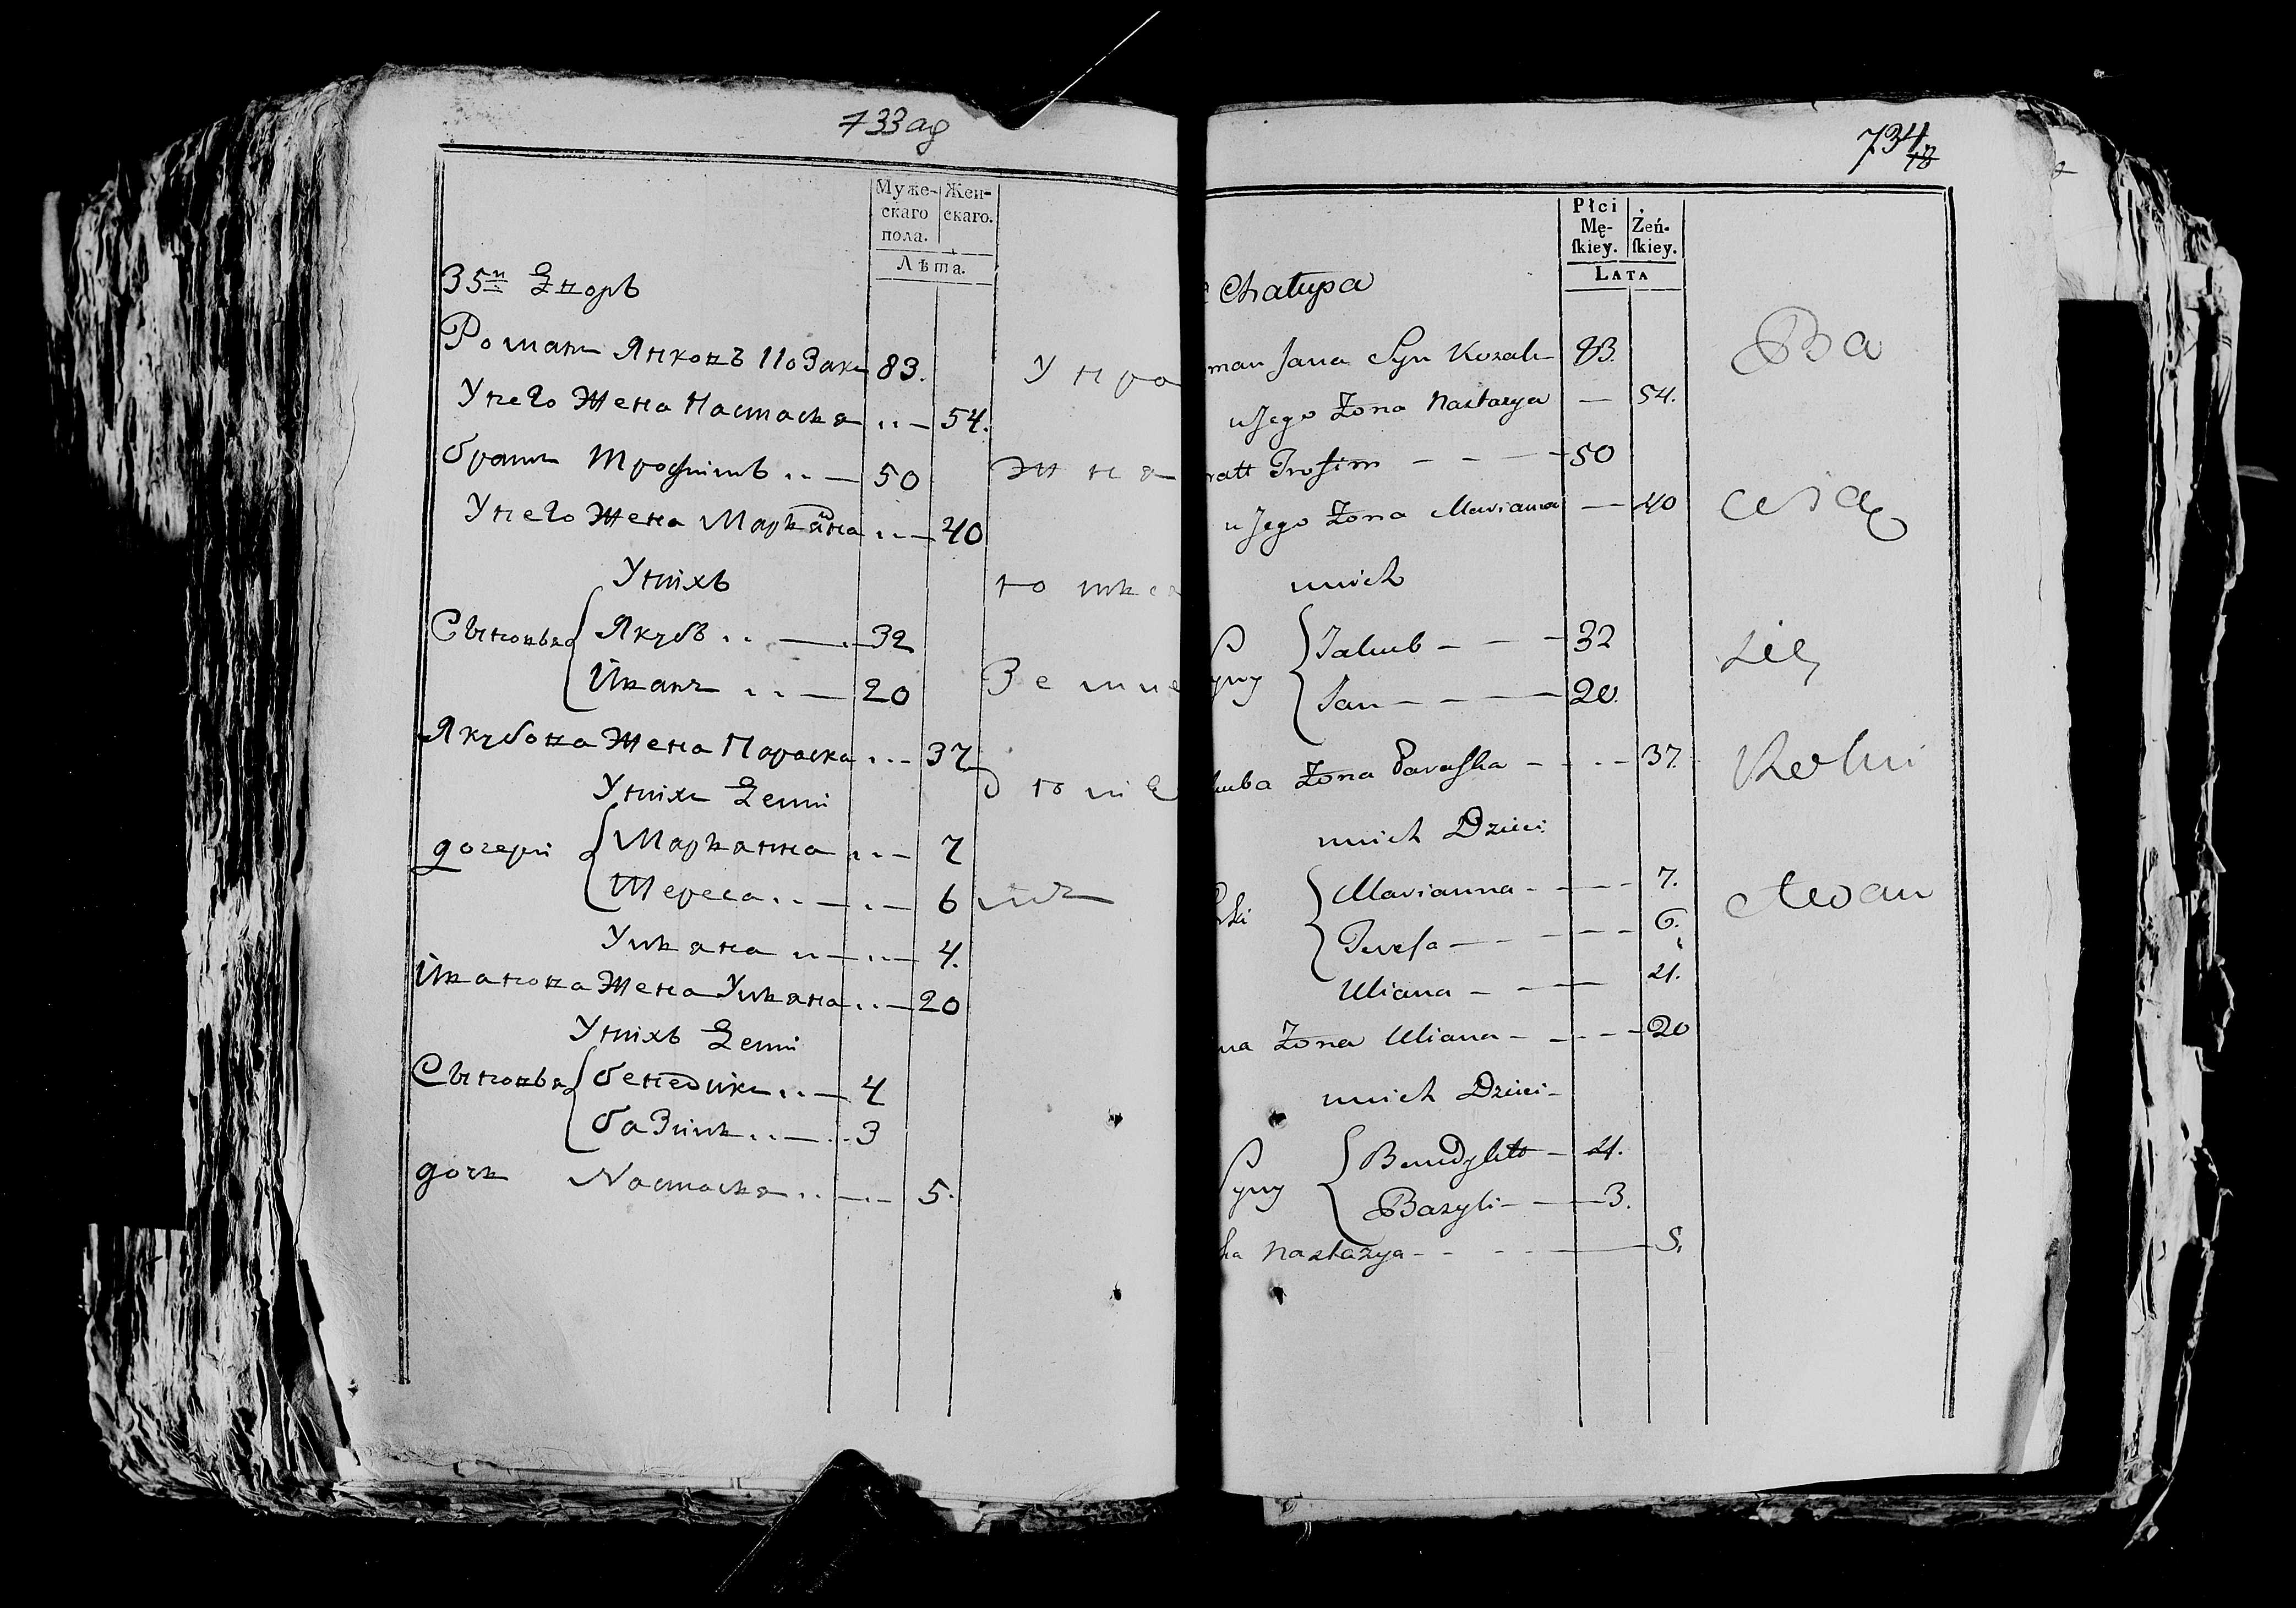 733 ад
Муже-
скаго
пола.
Жен-
скаго.
Лѣта.
35й Дворъ
Романъ Янковъ Козакъ 83.
У него Жена Настасья 54.
братъ Трофимъ 50
У него Жена Марьяна 40
У нихъ
Сыновья Якубъ 32
Иванъ 20
Якубова Жена Параска 37
У нихъ Дети
дочери Марьянна 7
Тереса 6
Ульяна 4.
Иванова Жена Ульяна 20
У нихъ Дети
Сыновья бенедикъ 4
базиль 3
дочь Настасья 5.
734
18
Płci
Mę-
skiey.
Żeń-
skiey.
LATA
Chałupa
man Jana Syn Kozak 83.
u Jego Żona Nastazya 54.
ratt Trofim 50
u Jego Żona Marianna 40
u nich
yny Jakub 32
Jan 20.
kuba Żona Paraska 37.
u nich Dzieci
rki Marianna 7.
Teresa 6.
Uliana 4.
na Żona Uliana 20
u nich Dzieci
Syny Benedykt 4.
Bazyli 3.
ka Nastazya 5.